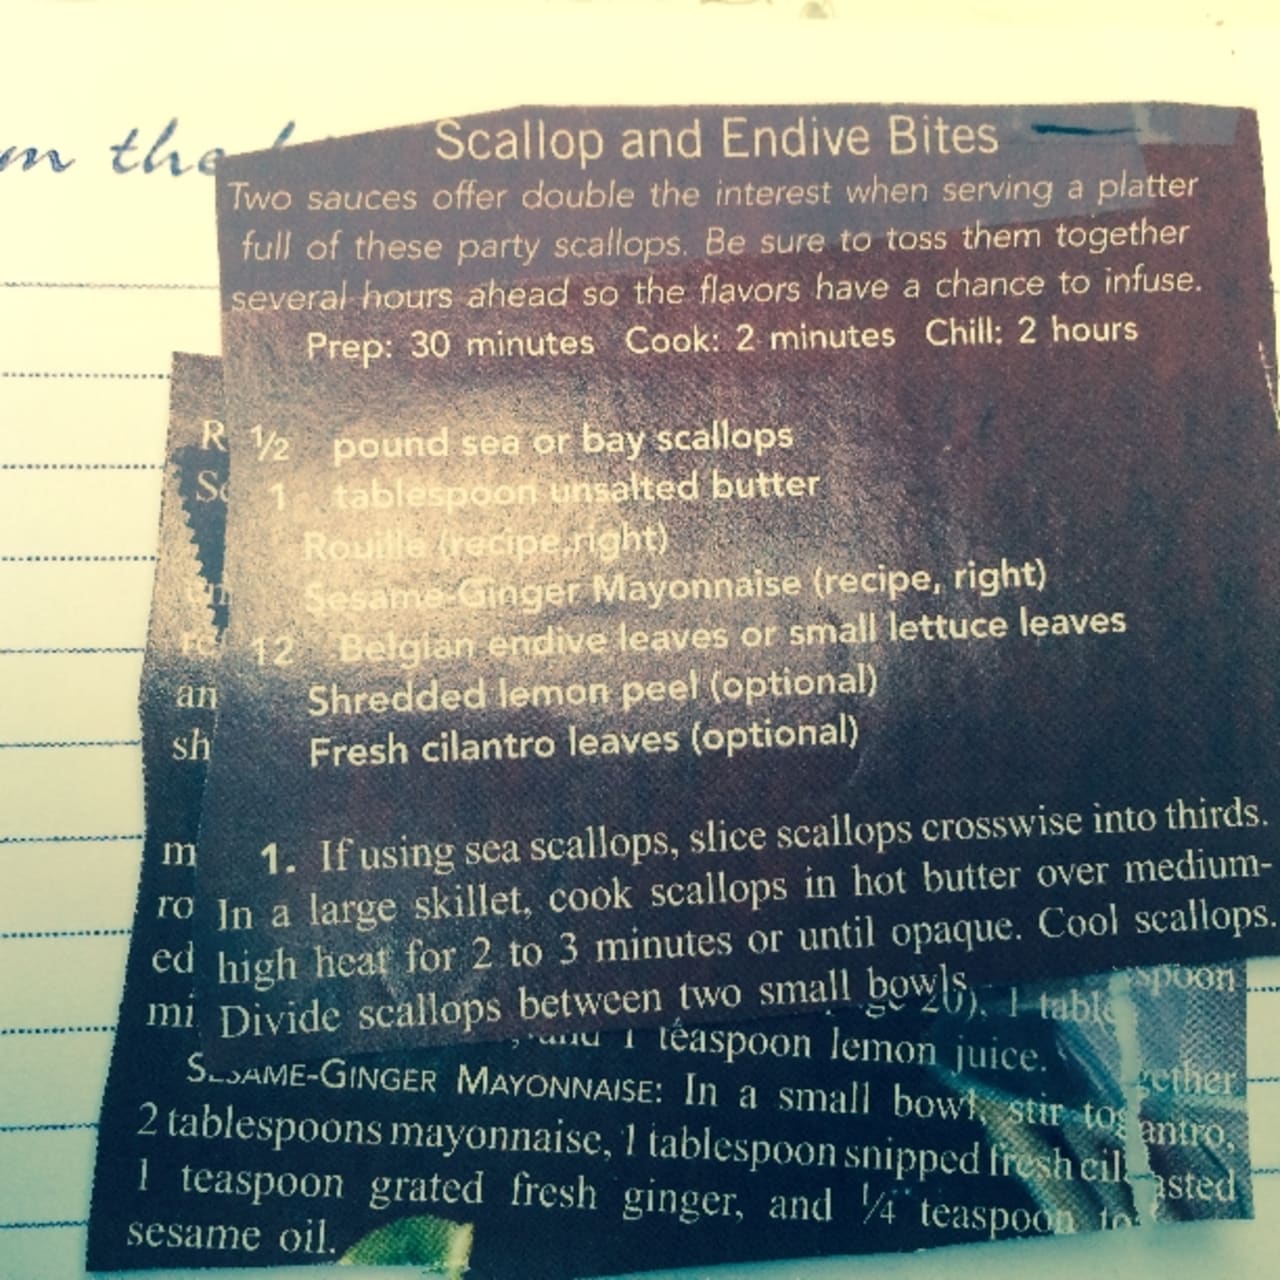 m the
Scallop and Endive Bites
Two sauces offer double the interest when serving a platter
full of these party scallops. Be sure to toss them together
several hours ahead so the flavors have a chance to infuse.
Prep: 30 minutes Cook: 2 minutes Chill: 2 hours
R
½ pound sea or bay scallops
Sc
1 tablespoon unsalted butter
Rouille (recipe, right)
Sesame-Ginger Mayonnaise (recipe, right)
12 Belgian endive leaves or small lettuce leaves
an
Shredded lemon peel (optional)
sh
Fresh cilantro leaves (optional)
m
1. If using sea scallops, slice scallops crosswise into thirds.
ro
In a large skillet, cook scallops in hot butter over medium-
ed
high heat for 2 to 3 minutes or until opaque. Cool scallops.
mi
Divide scallops between two small bowls.
20), 1 table spoon
and 1 teaspoon lemon juice.
SESAME-GINGER MAYONNAISE: In a small bowl, stir tog gether
2 tablespoons mayonnaise, 1 tablespoon snipped fresh cil antro,
1 teaspoon grated fresh ginger, and ¼ teaspoon to asted
sesame oil.